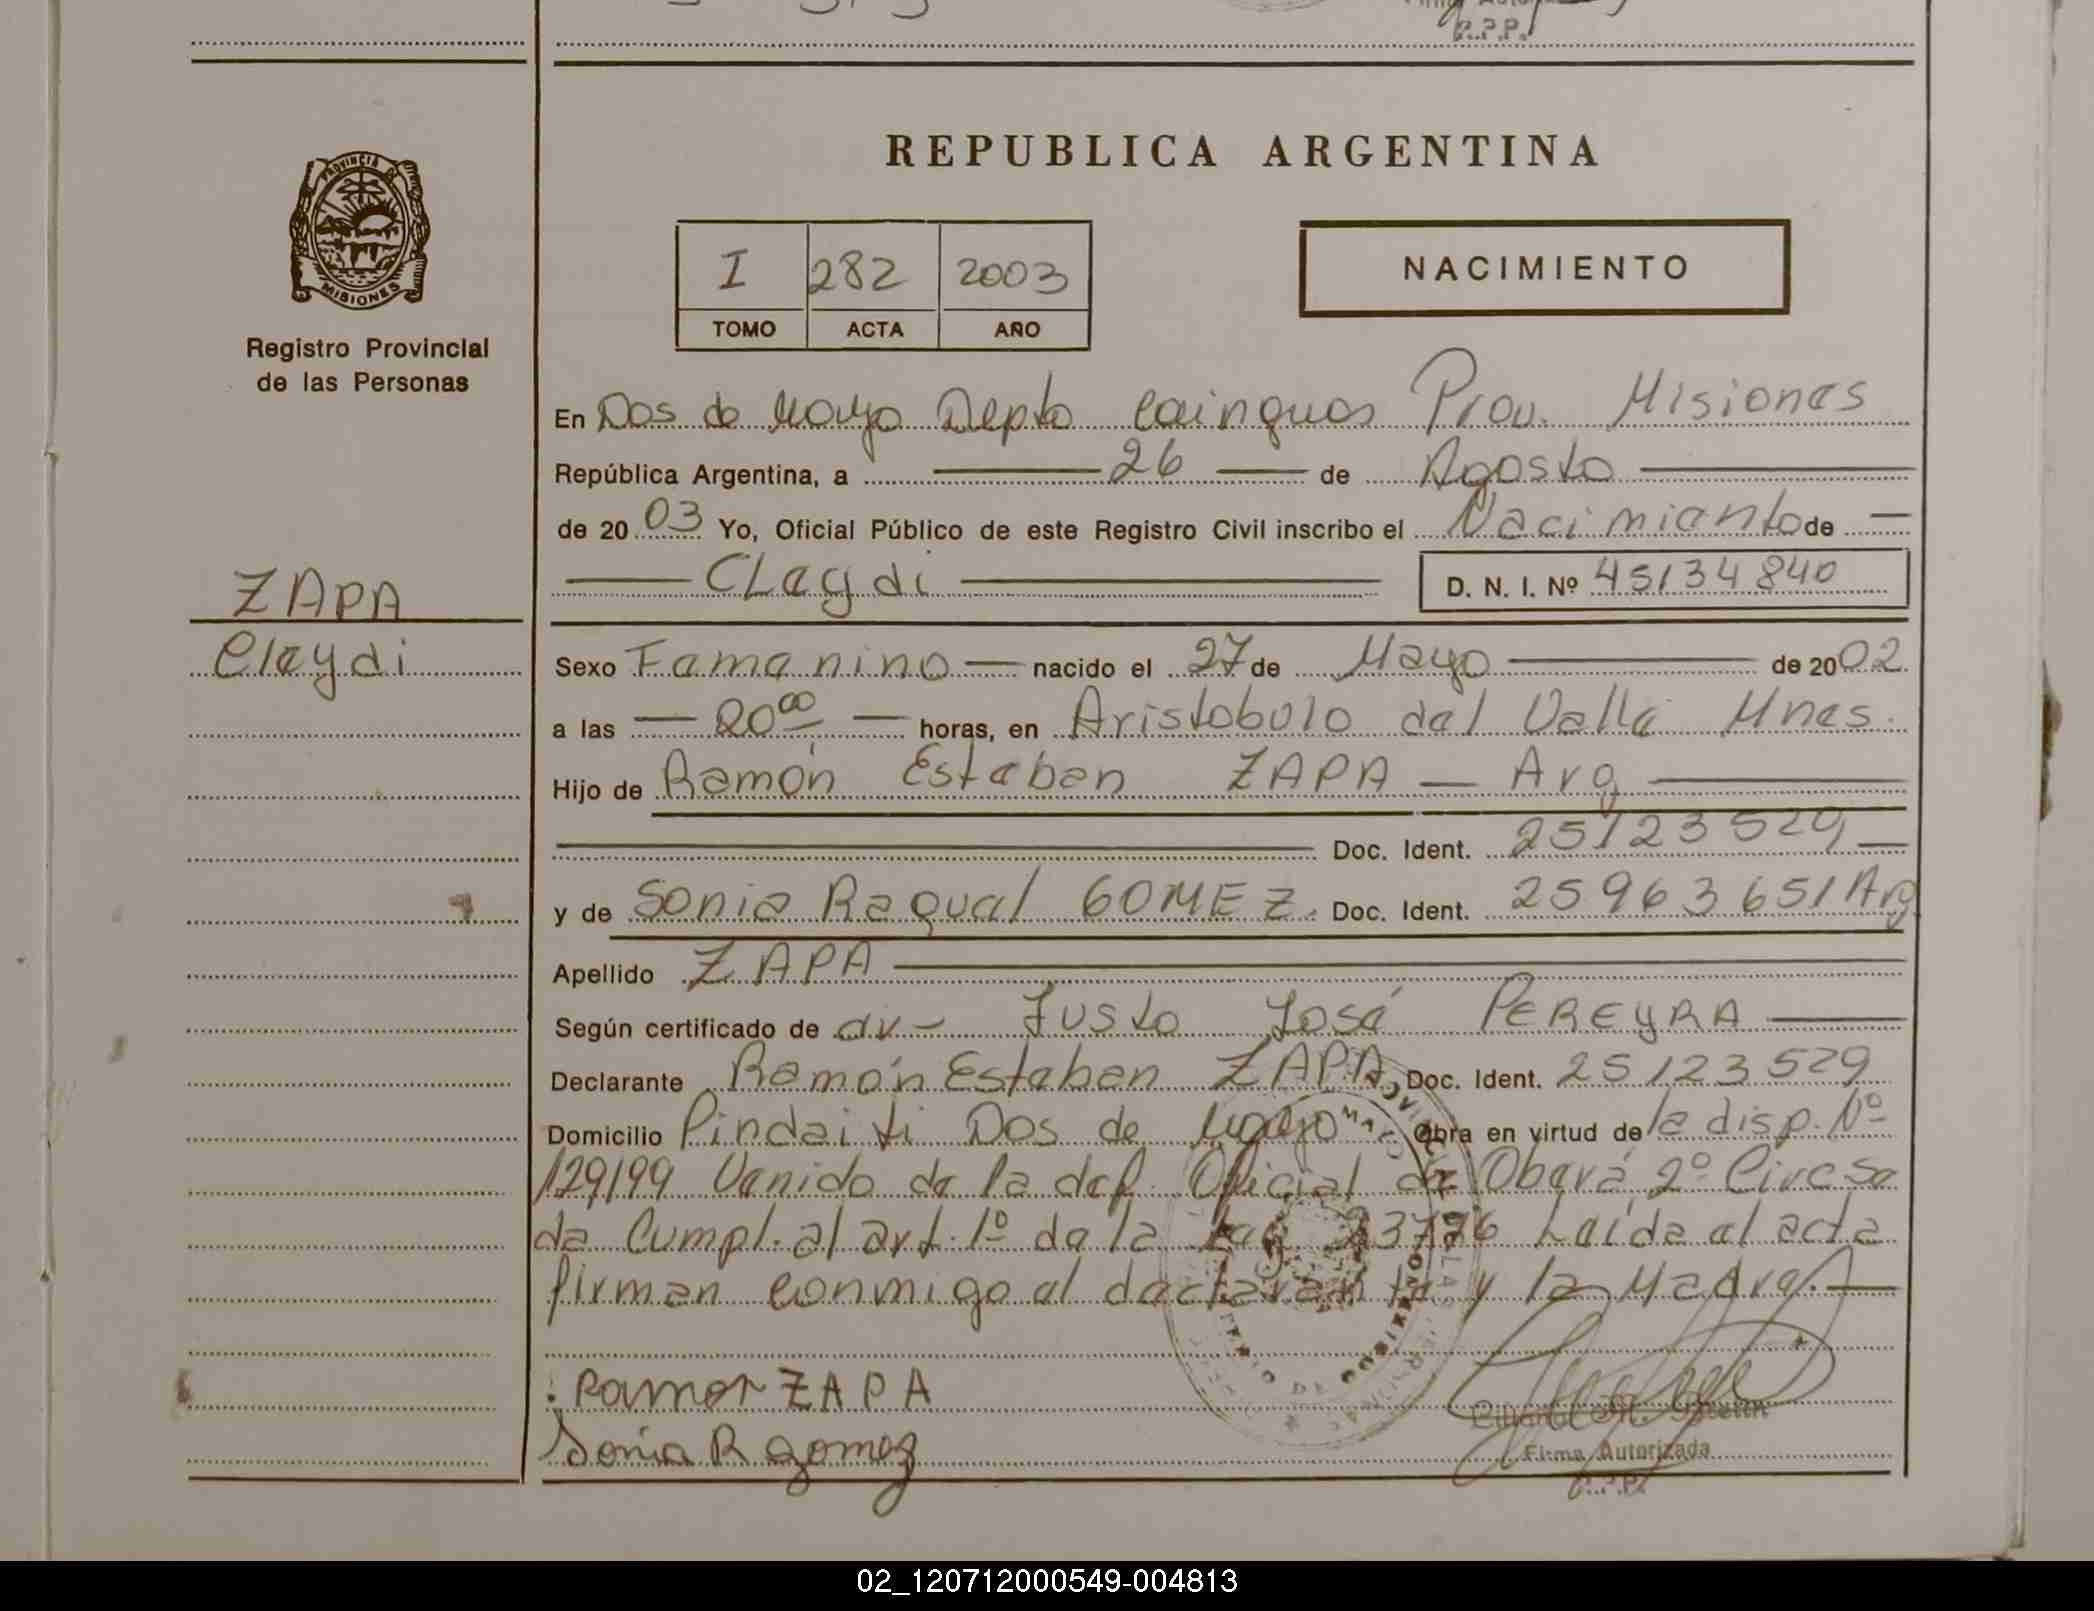 REPUBLICA ARGENTINA
PROVINCIA DE
MISIONES
Registro Provincial
de las Personas
I 282 2003
TOMO ACTA AÑO
NACIMIENTO
En Dos de Mayo Depto Cainguas Prov. Misiones
República Argentina, a 26 de Agosto
de 2003 Yo, Oficial Público de este Registro Civil inscribo el Nacimiento de
CLaydi
D. N. I. Nº 45134840
ZAPA
Claydi
Sexo Femenino nacido el 27 de Mayo de 2002
a las 20⁰⁰ horas, en Aristobulo del Valle Mnes.
Hijo de Ramón Esteban ZAPA — Arg
Doc. Ident. 25123529
y de Sonia Raquel GOMEZ. Doc. Ident. 25963651 Arg
Apellido ZAPA
Según certificado de dv- Justo José PEREYRA
Declarante Ramón Esteban ZAPA, Doc. Ident. 25123529
Domicilio Pindaiti Dos de Mayo Obra en virtud de la disp. Nº
129/99 Venido de la def. Oficial de Oberá 2º Circ Se
da Cumpl. al art. 1º de la Ley 23776 Leída el acta
firman conmigo el declarante y la Madre.
Ramon ZAPA
Sonia R gomez
Firma Autorizada
R.P.P.
02_120712000549-004813